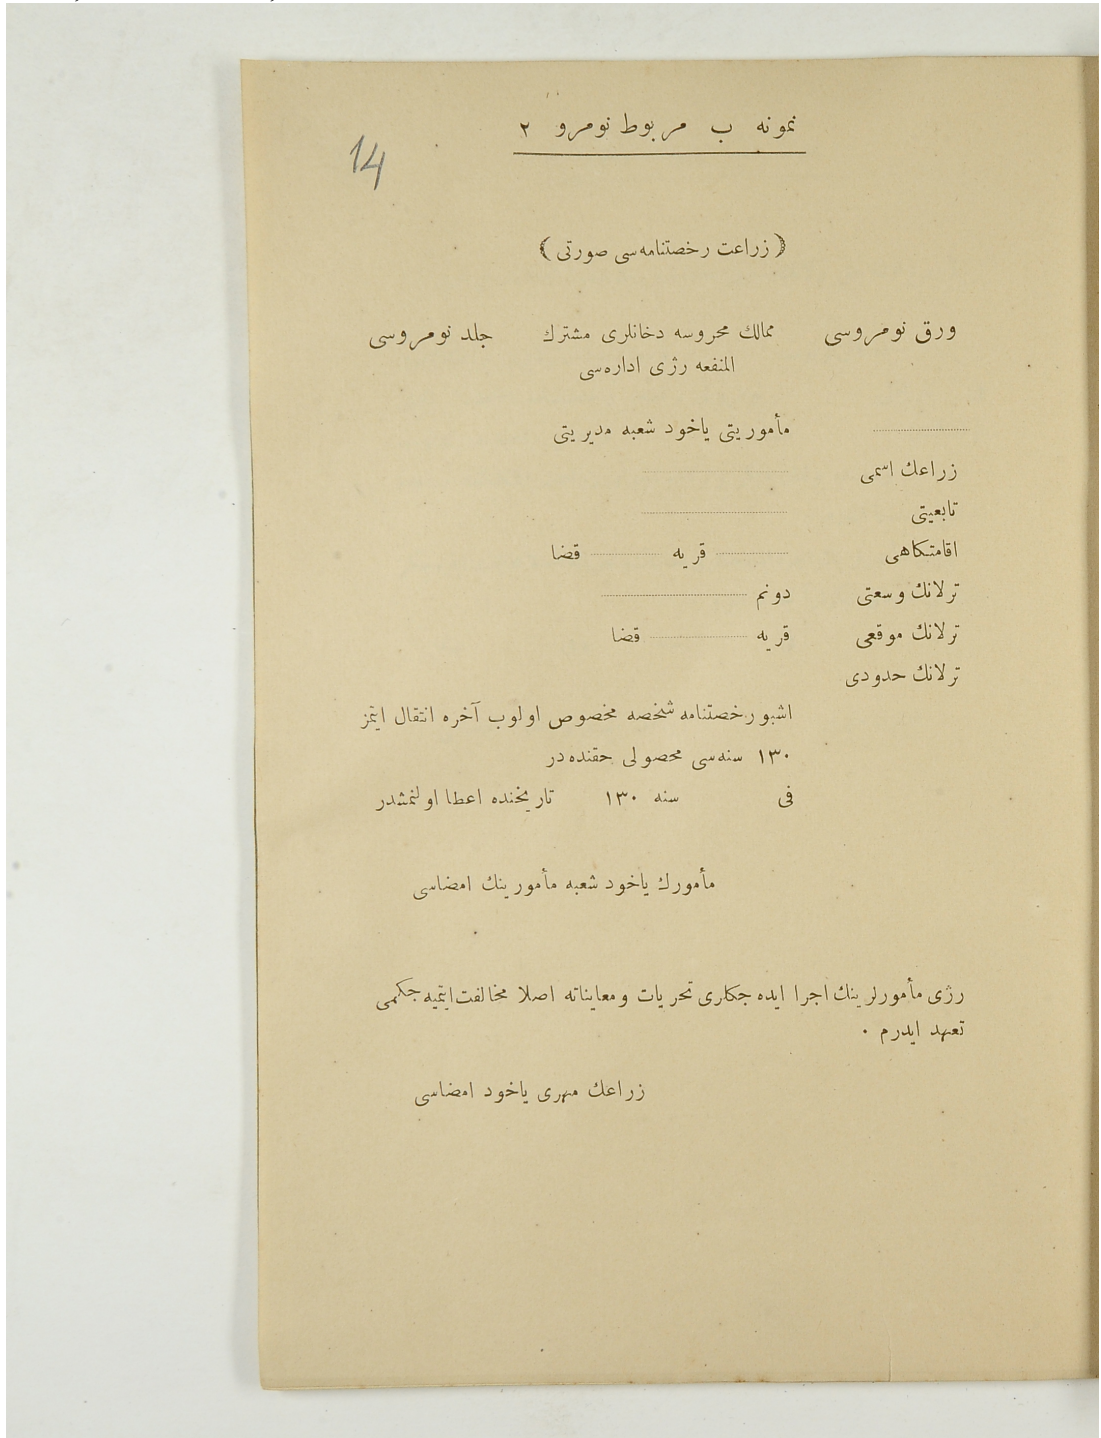 نمونه ب مربوط نومرو ٢
14
(زراعت رخصتنامه‌سی صورتی)
ورق نومروسی ممالك محروسه دخانلری مشترك جلد نومروسی
المنفعه رژی اداره‌سی
مأموریتی یاخود شعبه مدیریتی
زراعك اسمی
تابعیتی
اقامتكاهی قریه قضا
ترلانك وسعتی دونم
ترلانك موقعی قریه قضا
ترلانك حدودی
اشبو رخصتنامه شخصه مخصوص اولوب آخره انتقال ایتمز
١٣٠ سنه‌سی محصولی حقنده در
فی سنه ١٣٠ تاریخنده اعطا اولنمشدر
مأمورك یاخود شعبه مأمورینك امضاسی
رژی مأمورلرینك اجرا ایده جكلری تحریات ومعایناته اصلا مخالفت ایتمیه جكمی
تعهد ایدرم ٠
زراعك مهری یاخود امضاسی